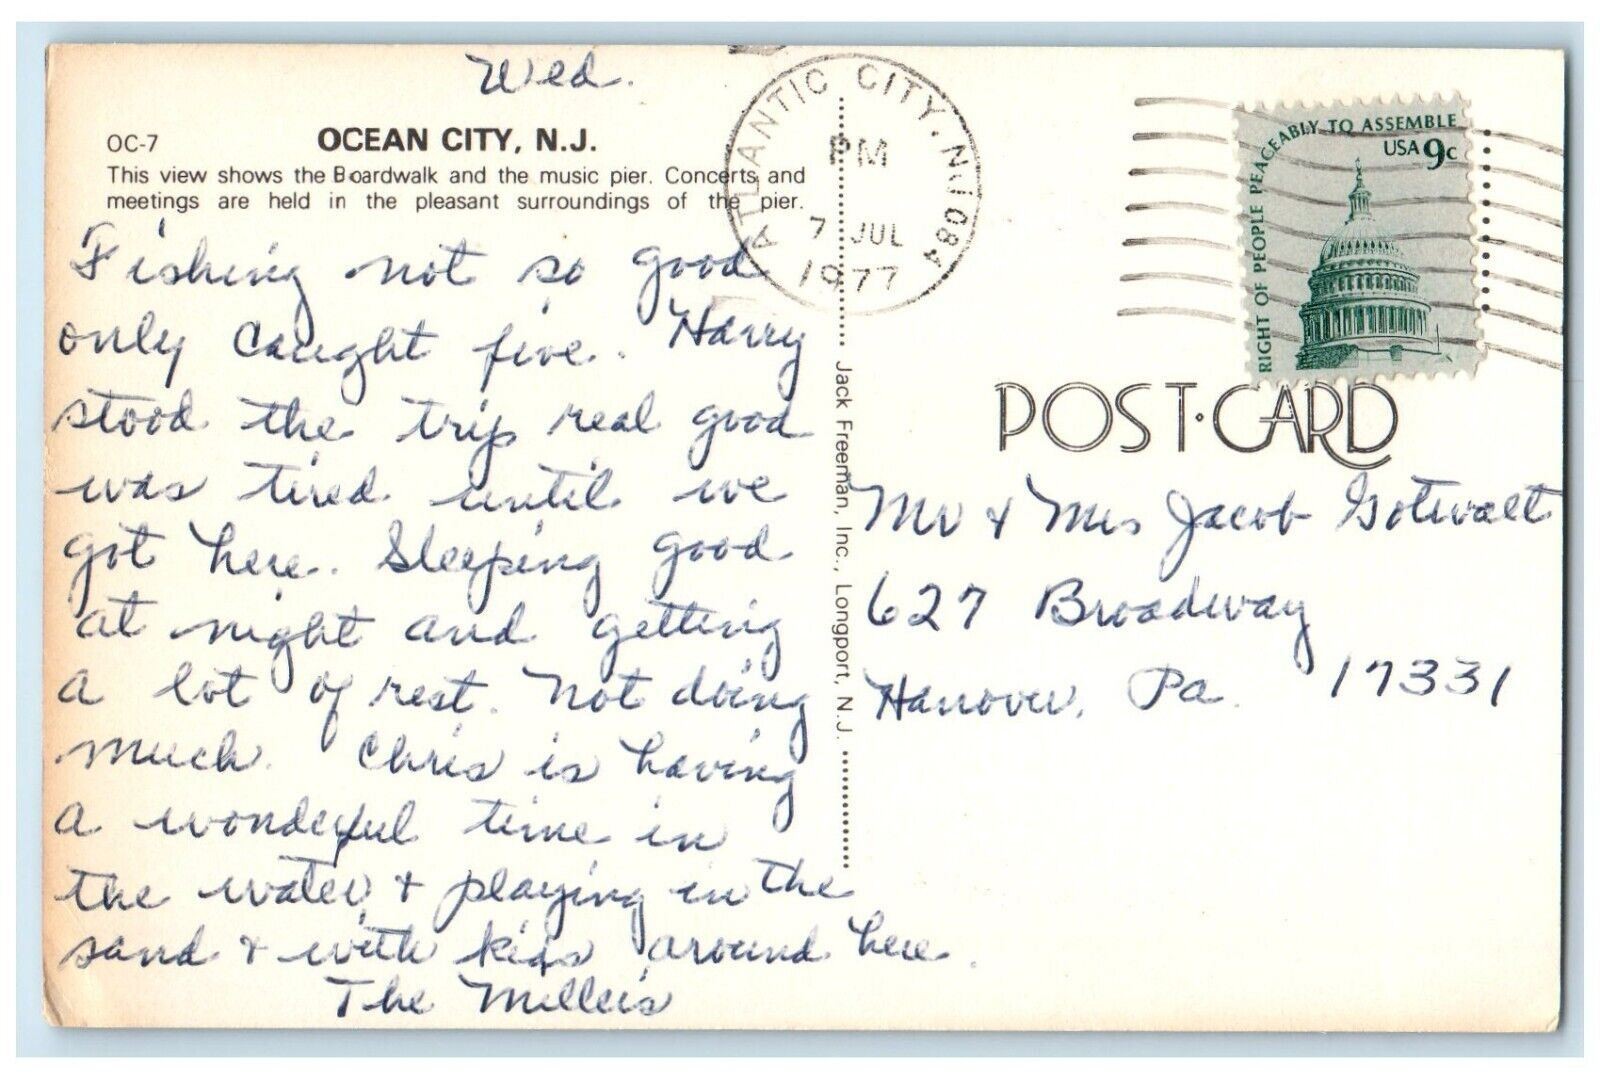 Wed.
OC-7 OCEAN CITY, N.J.
This view shows the Boardwalk and the music pier. Concerts and
meetings are held in the pleasant surroundings of the pier.
Fishing not so good
only caught five. Harry
stood the trip real good
was tired until we
got here. Sleeping good
at night and getting
a lot of rest. Not doing
much. Chris is having
a wonderful time in
the water & playing in the
sand & with kids around here.
The Millers
ATLANTIC CITY. NJ 084
PM
7 JUL
1977
RIGHT OF PEOPLE PEACEABLY TO ASSEMBLE
USA 9c
Jack Freeman, Inc., Longport, N.J.
POST·CARD
Mr & Mrs Jacob Gotwalt
627 Broadway
Hanover, Pa. 17331